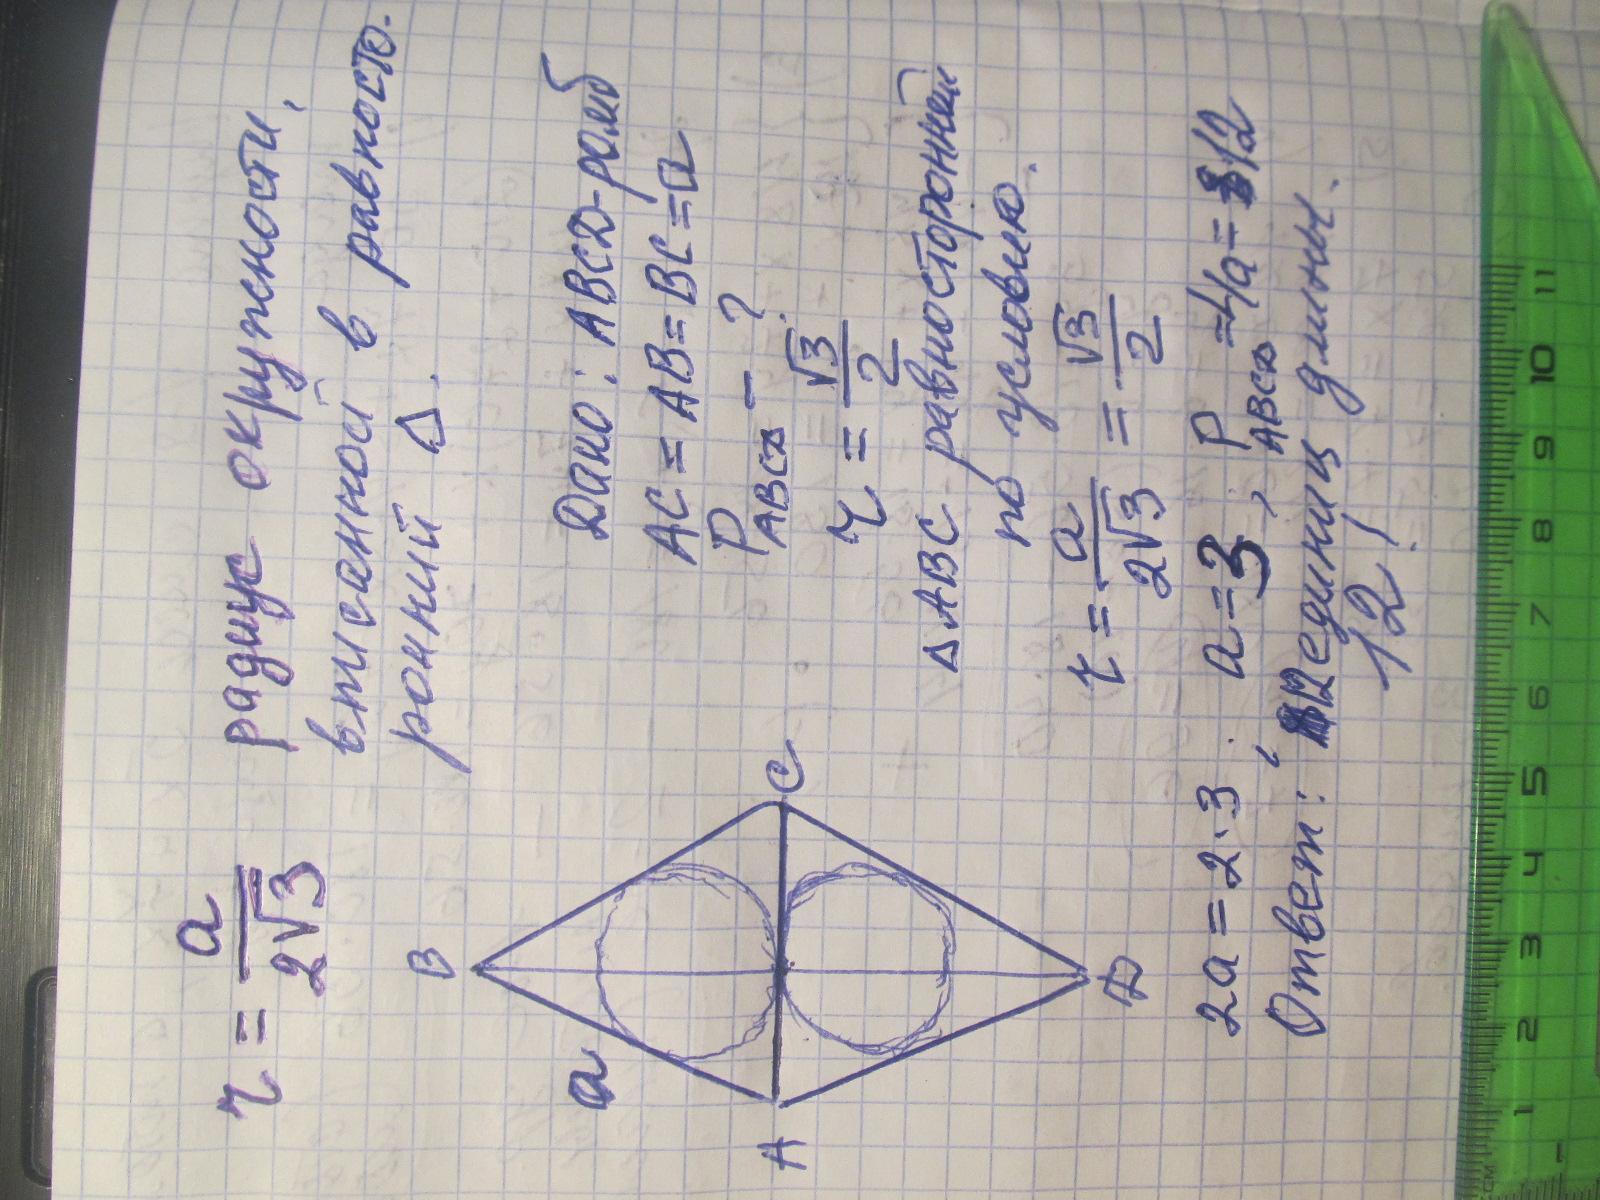 r = a / 2√3 радиус окружности,
вписанной в равносто-
ронний Δ.
B
a
A
C
D
Дано: ABCD-ромб
AC = AB = BC = a
P ABCD - ?
r = √3 / 2
ΔABC равносторонний
по условию.
r = a / 2√3 = √3 / 2
2a = 2·3; a = 3; P ABCD = 4a = 12
Ответ: 12 единиц длины.
12!
1 2 3 4 5 6 7 8 9 10 11
см